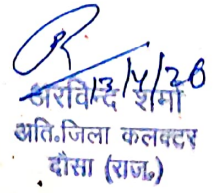 13/4/26
अरविन्द शर्मा
अति.जिला कलक्टर
दौसा (राज.)